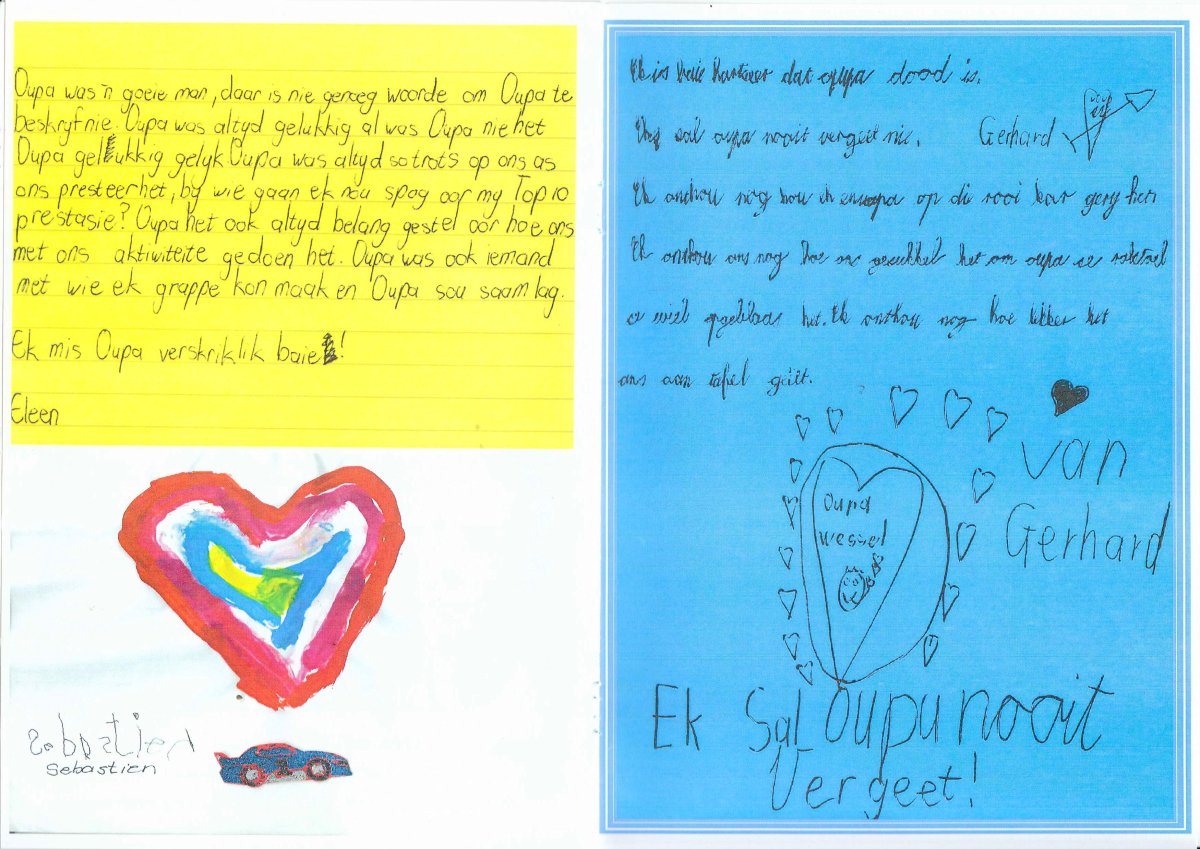 Oupa was 'n goeie man, daar is nie genoeg woorde om Oupa te
beskryf nie. Oupa was altyd gelukkig al was Oupa nie het
Oupa gelukkig gelyk. Oupa was altyd so trots op ons as
ons presteer het, by wie gaan ek nou spog oor my Top 10
prestasie? Oupa het ook altyd belang gestel oor hoe ons
met ons aktiwiteite gedoen het. Oupa was ook iemand
met wie ek grappe kon maak en Oupa sou saam lag.
Ek mis Oupa verskriklik baie!
Eleen
Sebastien
Sebastien
Ek is baie hartseer dat oupa dood is.
sal oupa nooit vergeet nie.
Gerhard
Ek onthou nog hou ek en oupa op di rooi kar gery het
Ek onthou ons nog hoe ons gesukkel het om oupa se
wiel opgeblaas het. Ek onthou nog hoe lekker het
ons aan tafel geëet.
van
Gerhard
Oupa
Wessel
Ek Sal Oupa nooit
Vergeet!